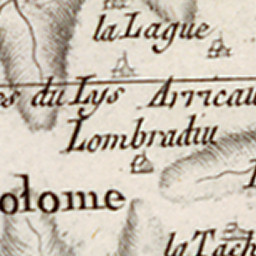 la Lague
es du Lys Arricau
Lombradiu
olome
la Tach